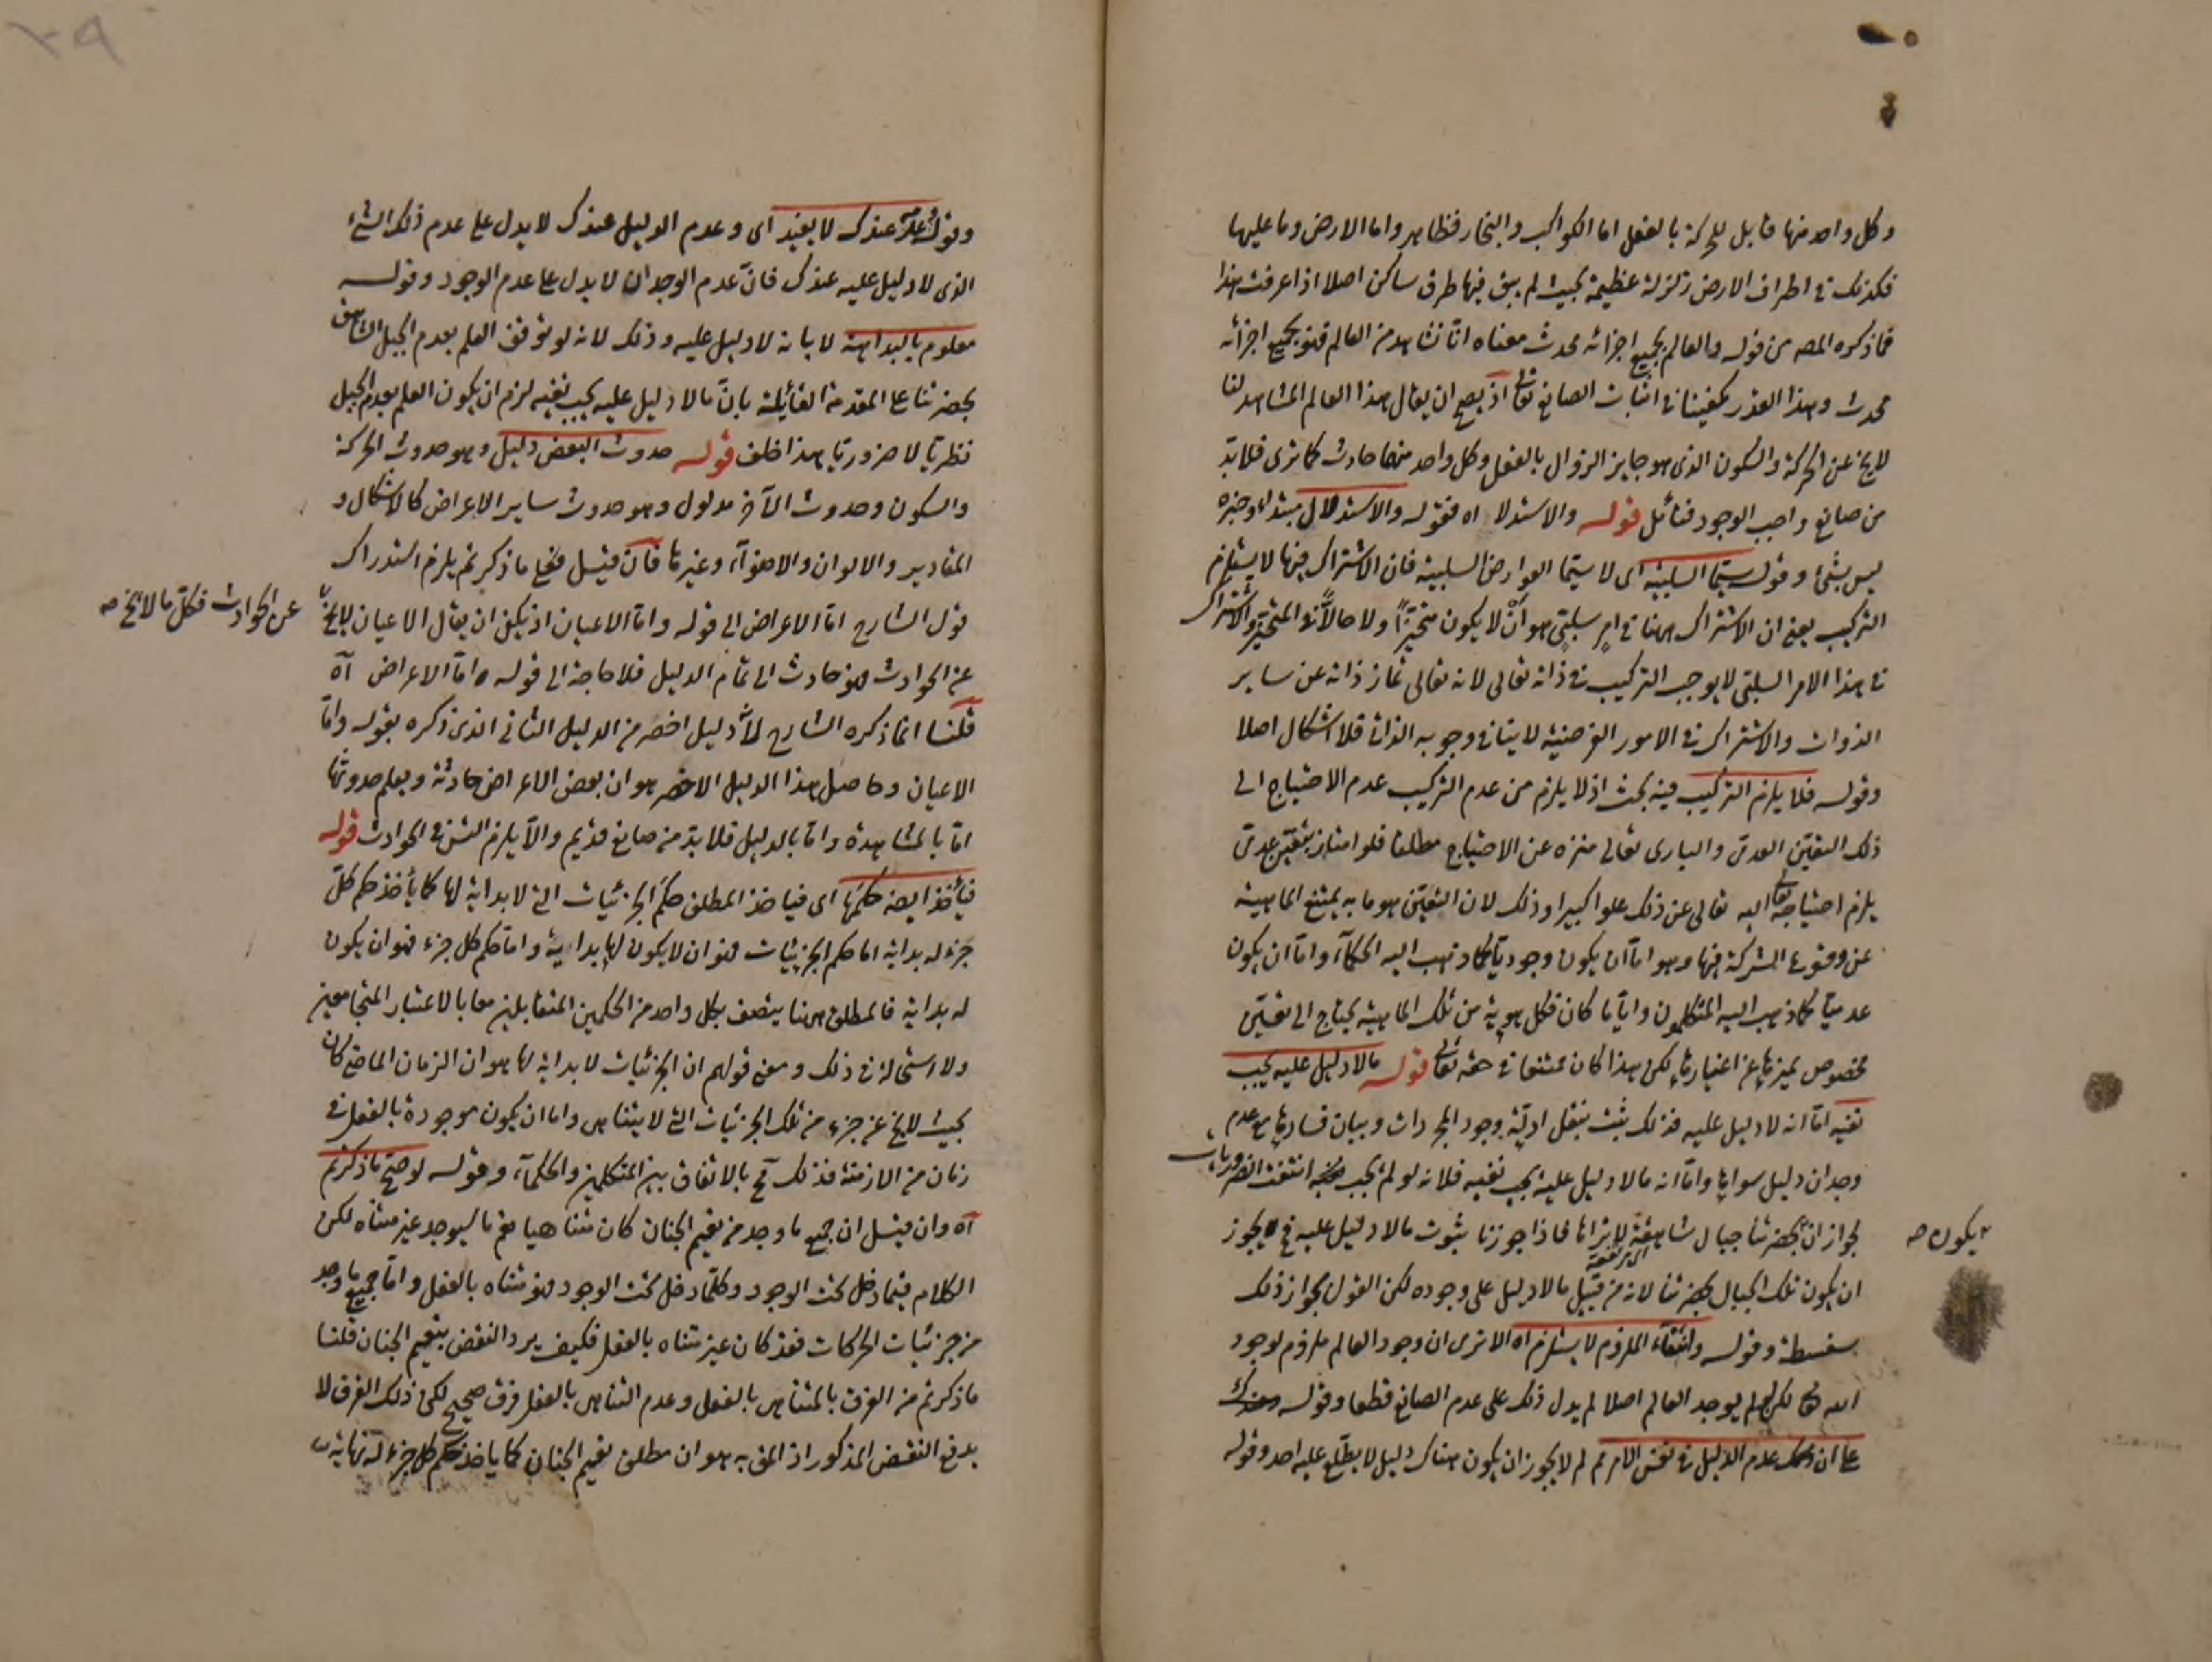 وكل واحد منها قابل للحركة بالفعل اما الكواكب والبخار فظاهر واما الارض وما عليها
فكذلك في اطراف الارض زلزلة عظيمة بحيث لم يبق فيها طرف ساكن اصلا اذا عرفت هذا
فما ذكره المصـ من قوله والعالم بجميع اجزائه محدث معناه ان ما نشاهد من العالم فهو بجميع اجزائه
محدث وهذا القدر يكفينا في اثبات الصانع تعالى اذ يصح ان يقال هذا العالم المشاهد لنا
لا يخ عن الحركة والسكون الذي هو جايز الزوال بالفعل وكل واحد منهما حادث كما ترى فلا بد
من صانع واجب الوجود فتأمل قوله والاستدلا اه فقوله والاستدلال مبتداء وخبره
ليس بشئ وقوله سيما السلبية اى لا سيما العوارض السلبية فان الاشتراك فيها لا يستلزم
التركيب يعنى ان الاشتراك ههنا في امر سلبي هو ان لا يكون متحيزا ولا حالا في المتحيز والاشتراك
في هذا الامر السلبي لا يوجب التركيب في ذاته تعالى لانه تعالى تماز ذاته عن ساير
الذوات والاشتراك في الامور العرضية لا ينافي وجوبه الذاتى فلا اشكال اصلا
وقوله فلا يلزم التركيب فيه بحث اذ لا يلزم من عدم التركيب عدم الاحتياج الى
ذلك التعين العدمى والبارى تعالى منزه عن الاحتياج مطلقا فلو امتاز بتعين عدمى
يلزم احتياجه تعالى اليه تعالى عن ذلك علوا كبيرا وذلك لان التعين هو ما به يمتنع الماهية
عن وقوع الشركة فيها وهو اما ان يكون وجوديا كما ذهب اليه الحكماء واما ان يكون
عدميا كما ذهب اليه المتكلمون وايا ما كان فكل هوية من تلك الماهية يحتاج الى تعين
مخصوص يميزها عن اغيارها لكن هذا كان ممتنعا في حقه تعالى قوله ما لا دليل عليه يجب
نفيه اما انه لا دليل عليه فذلك يثبت بنقل ادلة وجود المجردات وبيان فسادها مع عدم
وجدان دليل سواها واما انه ما لا دليل عليه يجب نفيه فلانه لو لم يجب نفيه انتفت الضروريات
لجواز ان بحضرتنا جبال شاهقة لا نراها فاذا جوزنا ثبوت ما لا دليل عليه فح يجوز
يكون صح
ان يكون تلك الجبال المرتفعة بحضرتنا لانه من قبيل ما لا دليل على وجوده لكن القول بجواز ذلك
سفسطة وقوله وانتفاء الملزوم لا يستلزم اه الا ترى ان وجود العالم ملزوم لوجود
الله تعالى لكن لو لم يوجد العالم اصلا لم يدل ذلك على عدم الصانع قطعا وقوله
على ان عدم الدليل في نفس الامر ثم لم لا يجوز ان يكون هناك دليل لا يطلع عليه احد وقوله
وقوله عدمه عندك لا يفيد اى وعدم الدليل عندك لا يدل على عدم ذلك الشئ
الذى لا دليل عليه عندك فان عدم الوجدان لا يدل على عدم الوجود وقوله
معلوم بالبداهة لا بانه لا دليل عليه وذلك لانه لو توقف العلم بعدم الجبل الشاهق
بحضرتنا على المقدمة القائلة بان ما لا دليل عليه يجب نفيه لزم ان يكون العلم بعدم الجبل
نظريا لا ضروريا هذا خلف قوله حدوث البعض دليل وهو حدوث الحركة
والسكون وحدوث الآخر مدلول وهو حدوث ساير الاعراض كالاشكال و
المقادير والالوان والاضواء وغيرها فان قيل فعلى ما ذكرتم يلزم استدراك
قول الشارح اما الاعراض الى قوله واما الاعيان اذ يكفى ان يقال الاعيان لا يخ
عن الحوادث فكل ما لا يخ صح
عن الحوادث فهو حادث الى تمام الدليل فلا حاجة الى قوله اما الاعراض آه
قلنا انما ذكره الشارح لانه دليل اخصر من الدليل الثانى الذى ذكره بقوله واما
الاعيان وحاصل هذا الدليل الاخصر هو ان بعض الاعراض حادثة ويعلم حدوثها
اما بالمشاهدة واما بالدليل فلا بد من صانع قديم والا يلزم التس في الحوادث قوله
فيأخذ ايضا حكمها اى فياخذ المطلق حكم الجزئيات التى لا بداية لها كما يأخذ حكم كل
جزء له بداية اما حكم الجزئيات فهو ان لا يكون لها بداية واما حكم كل جزء فهو ان يكون
له بداية فالمطلق ههنا يتصف بكل واحد من الحكمين المتقابلين معا بالاعتبار المتجامعين
ولا استحالة في ذلك ومعنى قولهم ان الجزئيات لا بداية لها هو ان الزمان الماضى كان
بحيث لا يخ عن جزء من تلك الجزئيات التى لا يتناهى واما ان يكون موجودة بالفعل في
زمان من الازمنة فذلك مح بالاتفاق بين المتكلمين والحكماء وقوله لو صح ما ذكرتم
آه وان قيل ان جميع ما وجد من نعيم الجنان كان متناهيا مع ما سيوجد غير متناه لكن
الكلام فيما دخل تحت الوجود وكلما دخل تحت الوجود فهو متناه بالفعل واما جميع ما وجد
من جزئيات الحركات فقد كان غير متناه بالفعل فكيف يرد النقض بنعيم الجنان قلنا
ما ذكرتم من الفرق بالمتناهى بالفعل وعدم التناهى بالفعل فرق صحيح لكن ذلك الفرق لا
يدفع النقض المذكور اذ المق به هو ان مطلق نعيم الجنان كما ياخذ حكم كل جزء له نهاية